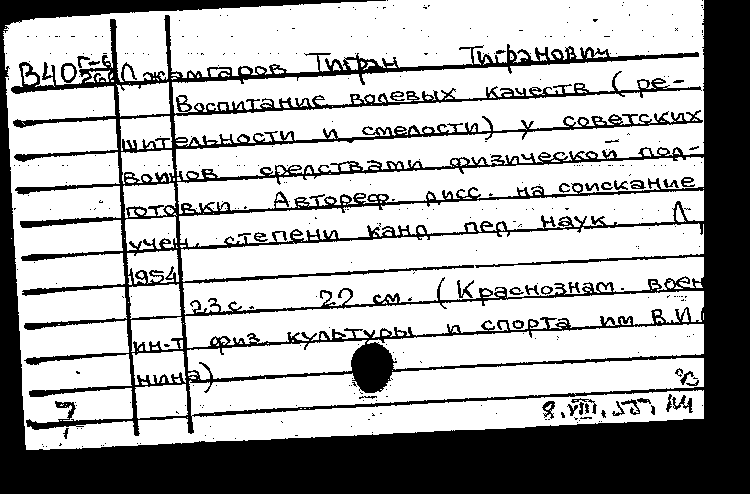 В40 Джамгаров, Тигран Тигранович
Воспитание волевых качеств (ре-
шительности и смелости) у советских
воинов средствами физической под-
готовки. Автореф. дисс. на соискание
учен. степени канд. пед. наук. Л,
1954
23 с. 22 см. (Краснознам. воен
ин-т физ. культуры и спорта им В.И.
нина)
7
8.VIII.55.